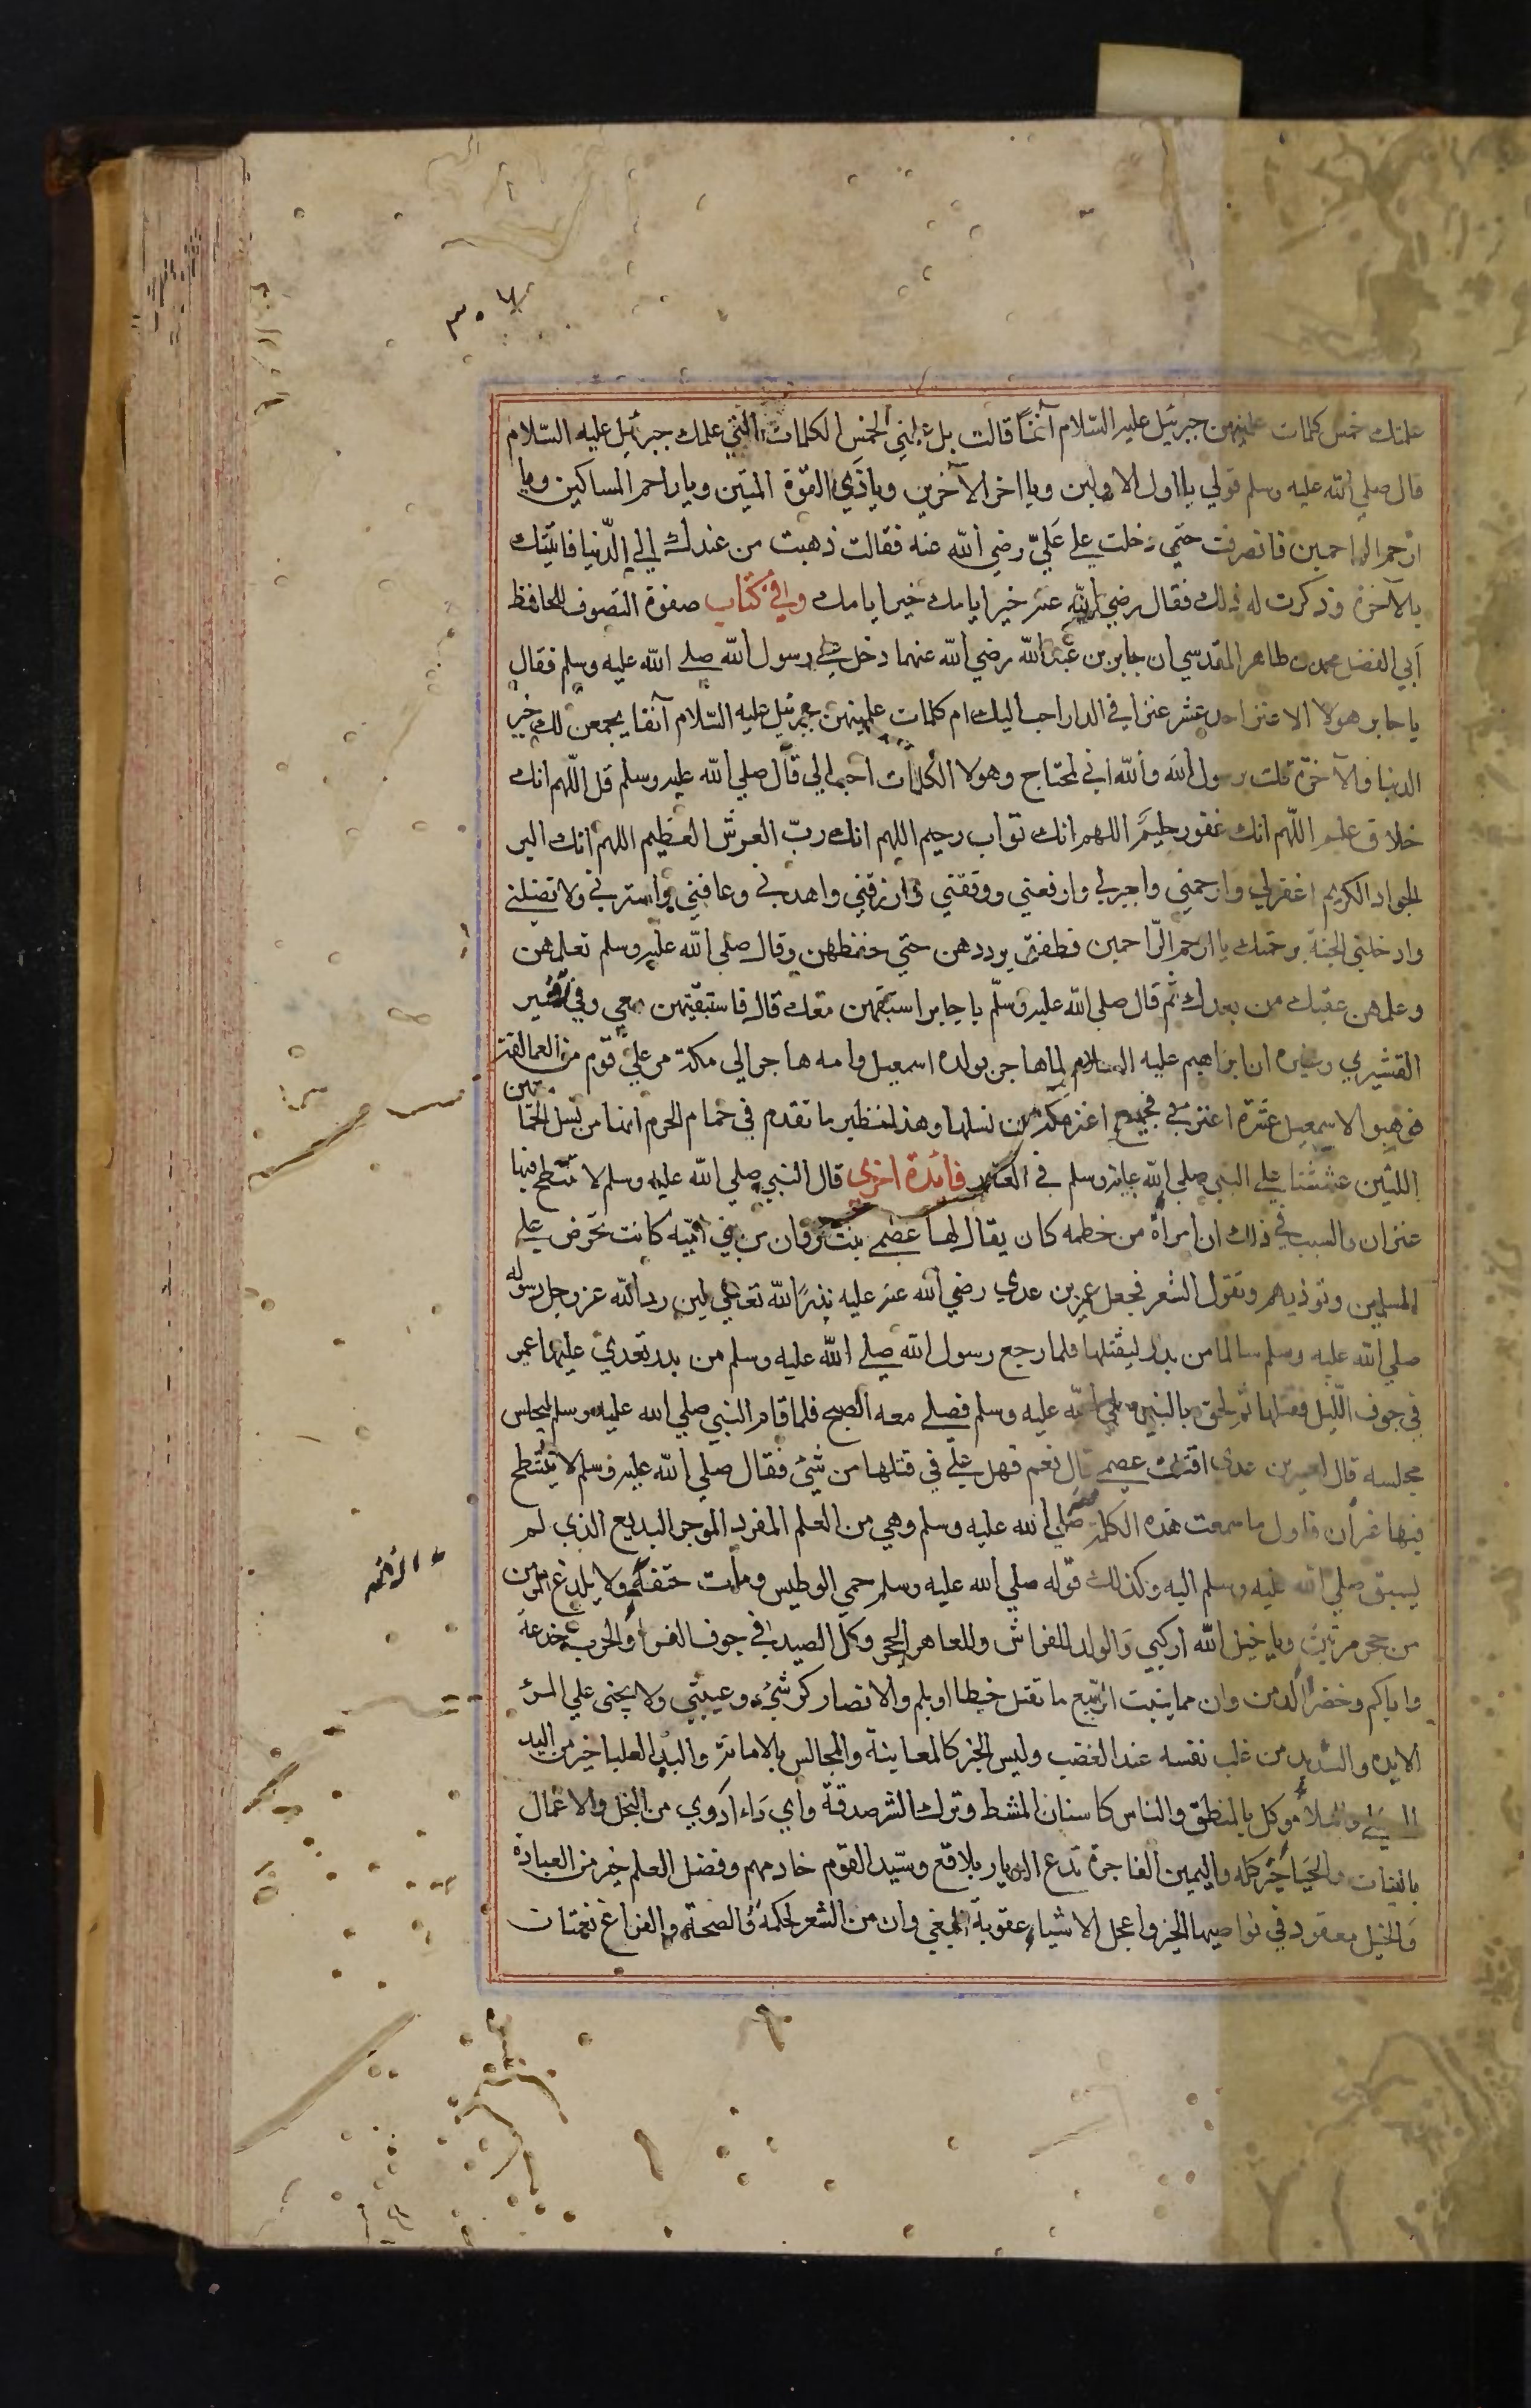 ٣٠٧
علمتك خمس كلمات علمنيهن جبرئيل عليه السّلام آنفاً قالت بل علمني الخمس الكلمات التي علمك جبرئيل عليه السّلام
قال صلي الله عليه وسلم قولي يا اول الاولين ويا اخر الآخرين وياذي القوّة المتين ويا راحم المساكين ويا
ارحم الراحمين فانصرفت حتي دخلت علي عَليّ رضي الله عنه فقالت ذهبت من عندك الي الدّنيا فاتيتك
بالآخرة وذكرت له ذلك فقال رضي الله عنه خير ايامك خير ايامك وفي كتاب صفوة التصوف للحافظ
أبي الفضل محمد بن طاهر المقدسي ان جابر بن عبد الله رضي الله عنهما دخل علي رسول الله صلي الله عليه وسلم فقال
يا جابر هولا الاعنز احدي عشر عنزا في الدار احب اليك ام كلمات علمنيهن جبرئيل عليه السّلام آنفا يجمعن لك خير
الدنيا والآخرة قلت يرسول الله والله اني لمحتاج وهولا الكلمات احب الي قال صلي الله عليه وسلم قل اللّهم انك
خلاق عليم اللّهم انك غفور حليم اللهم انك تواب رحيم اللهم انك ربّ العرش العظيم اللهم انك البر
الجواد الكريم اغفر لي وارحمني واجبرني وارفعني ووفقني وارزقني واهدني وعافني واسترني ولا تضلني
وادخلني الجنة برحمتك يا ارحم الرّاحمين فطفق يرددهن حتي حفظهن وقال صلي الله عليه وسلم تعلمهن
وعلمهن عقبك من بعدك ثم قال صلي الله عليه وسلّم يا جابر استبقهن معك قال فاستبقيتهن معي وفي تفسير
القشيري وغيره ان ابراهيم عليه السلام لما هاجر بولده اسمعيل وامه هاجر الي مكة مر علي قوم من العمالقة
فوهبوا لاسمعيل عشرة اعنز فجميع اعنز مكة من نسلها وهذا نظير ما تقدم في حمام الحرم انها من نسل الحمامتين
اللتين عششتا علي النبي صلي الله عليه وسلم في الغار فائدة اخري قال النبي صلي الله عليه وسلم لا تنتطح فيها
عنزان والسبب في ذلك ان امرأة من خطمه كان يقال لها عصمي بنت مروان من بني اميّه كانت تحرض علي
المسلمين وتوذيهم وتقول الشعر فجعل عمير بن عدي رضي الله عنه عليه نذرا لله تعالي لين رد الله عز وجل رسوله
صلي الله عليه وسلم سالما من بدر ليقتلها فلما رجع رسول الله صلي الله عليه وسلم من بدر تعدي عليها عمير
في جوف اللّيل فقتلها ثم لحق بالنبي صلي الله عليه وسلم فصلي معه الصبح فلما قام النبي صلي الله عليه وسلم ليجلس
مجلسه قال لعمير بن عدي اقتلت عصمي قال نعم فهل عليّ في قتلها من شيئ فقال صلي الله عليه وسلم لا تنتطح
فيها عنزان فاول ما سمعت هذه الكلمة منه صلي الله عليه وسلم وهي من العلم المفرد الموجز البديع الذي لم
يسبق صلي الله عليه وسلم اليه وكذلك قوله صلي الله عليه وسلم حمي الوطيس ومات حتف ولا يلدغ المومن
من جحر مرتين ويا خيل الله اركبي والولد للفراش وللعاهر الحجر وكل الصيد في جوف الفرا والحرب خدعة
واياكم وخضرا الدمن وان مما ينبت الرّبيع ما يقتل حبطا او يلم والانصار كرشيئ وعيبتي ولا يجني علي المرء
الا يده والشديد من غلب نفسه عند الغضب وليس الخبر كالمعاينة والمجالس بالامانة واليد العليا خير من اليد
السفلي والبلاء موكل بالمنطق والناس كاسنان المشط وترك الشر صدقة واي داء ادوي من البخل والاعمال
بالنيات والحياء خير كله واليمين الفاجرة تدع الديار بلاقع وسيّد القوم خادمهم وفضل العلم خير من العبادة
والخيل معقود في نواصيها الخير واعجل الاشياء عقوبة البغي وان من الشعر لحكمة والصحة والفراغ نعمتان